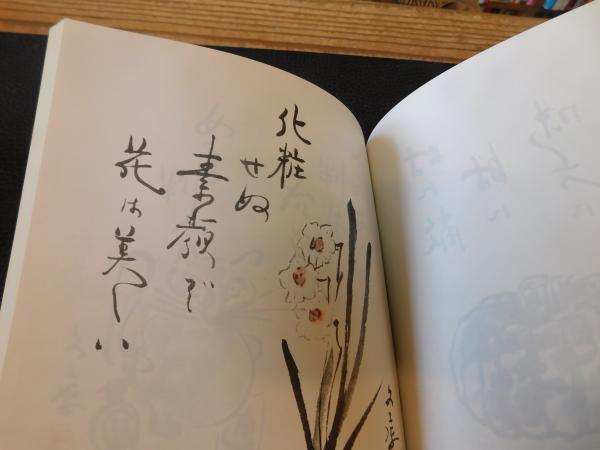 化粧
せぬ
素顔で
花は美しい